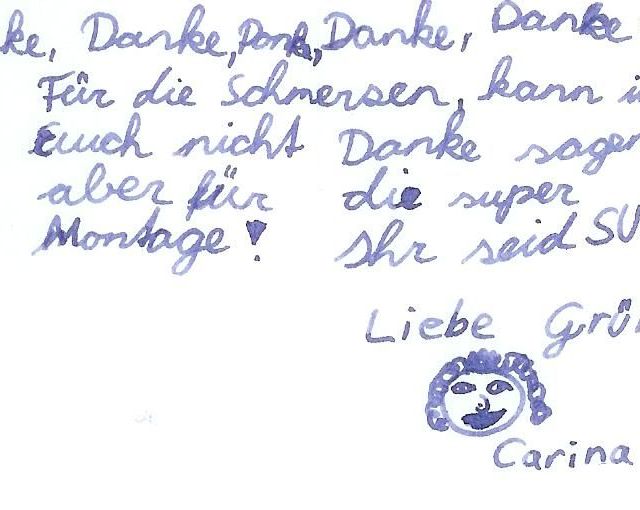 ke, Danke, Dank, Danke, Danke
Für die Schmersen, kann i
Euuch nicht Danke sagen
aber für die super
Montage!
Ihr seid SU
Liebe Grü
Carina